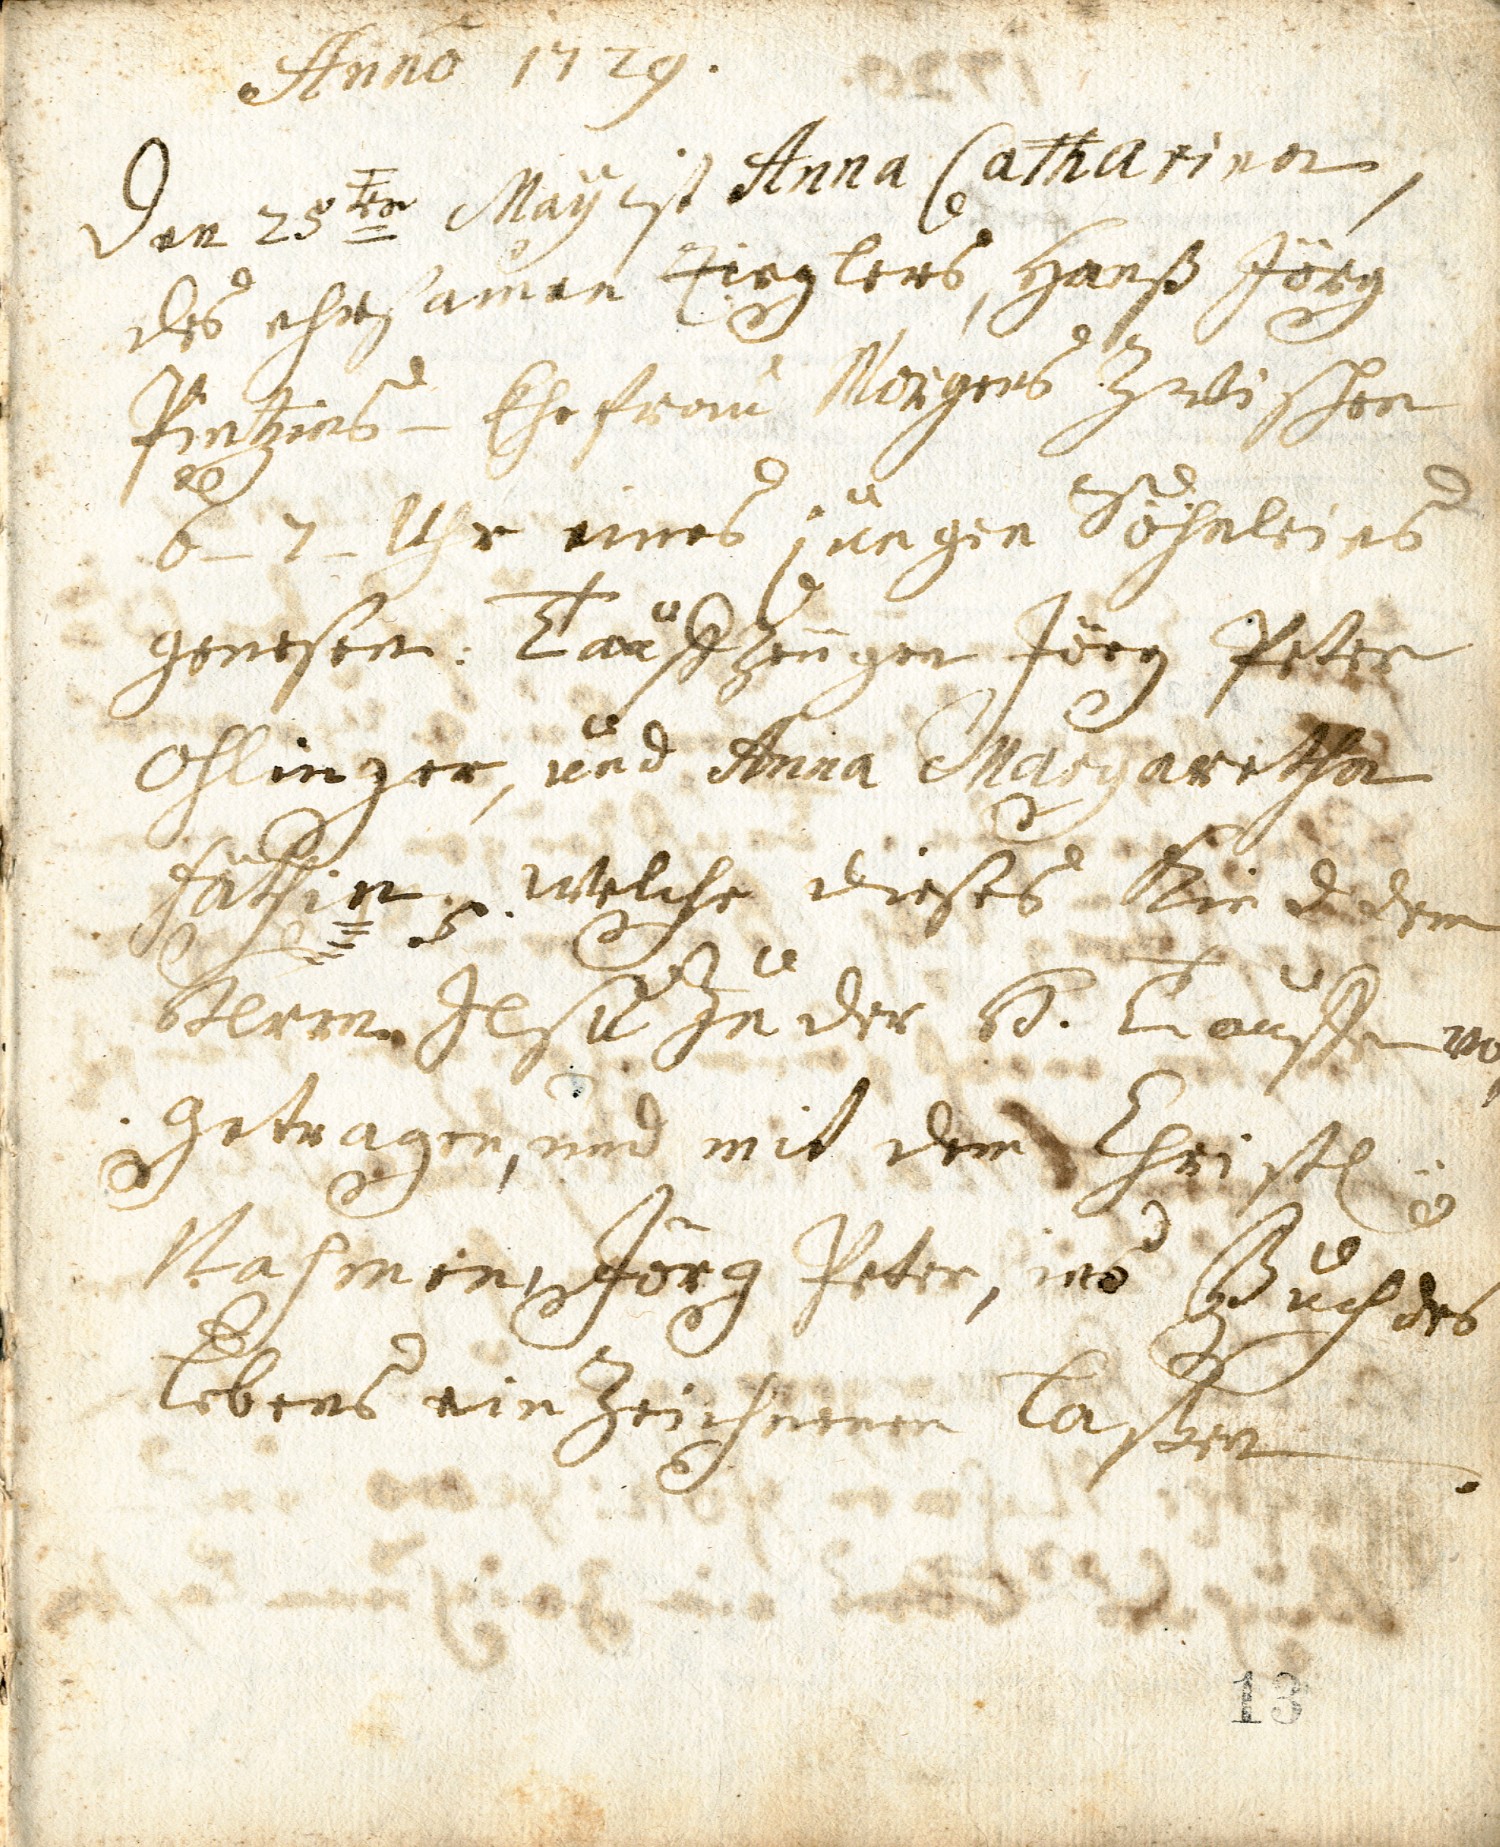 Anno 1729.
Den 25ten Maÿ ist Anna Catharina,
des ehrsamen Zieglers, Hanß Jörg
Ehefrau Morgens Zwischen
6 - 7 - Uhr eines jungen Söhnleins
genesen: Tauffzeugen Jörg Peter
Ohlinger, und Anna Margaretha
welche dieses Kind dem
Herrn Jesu zu der H. Tauffe vor
getragen, und mit dem Christl
Nahmen, Jörg Peter, ins Buch des
Lebens ein Zeichnenen Laßen.
13